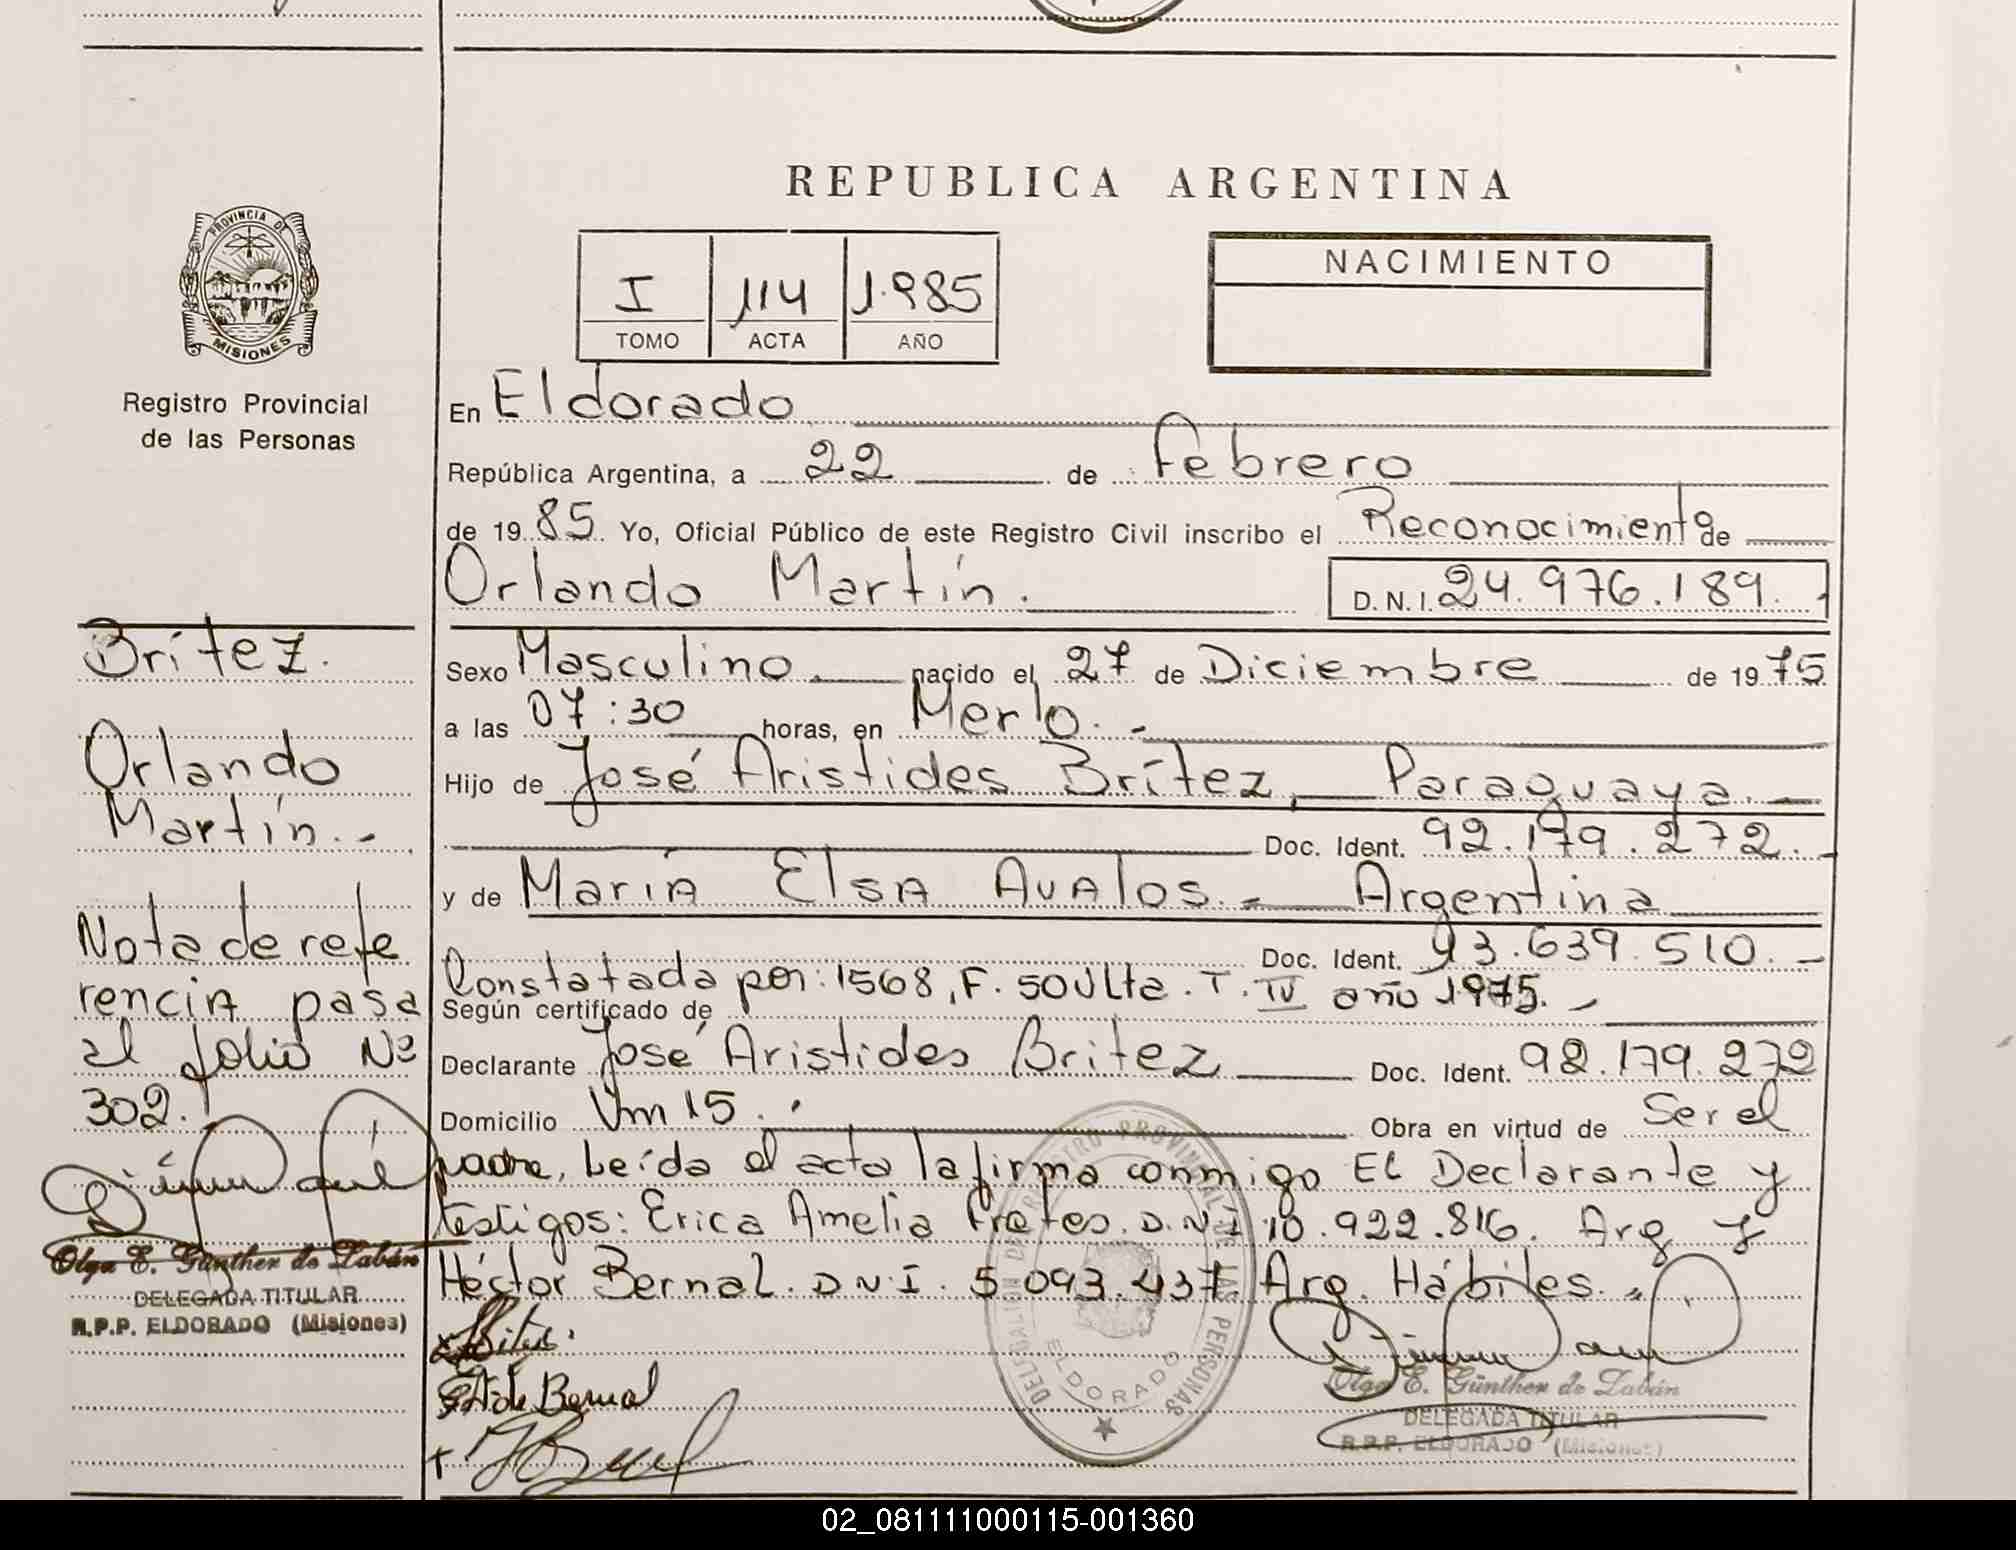 REPUBLICA ARGENTINA
PROVINCIA DE
MISIONES
Registro Provincial
de las Personas
I 114 1.985
TOMO ACTA AÑO
NACIMIENTO
En Eldorado
República Argentina, a 22 de Febrero
de 1985 Yo, Oficial Público de este Registro Civil inscribo el Reconocimiento de
Orlando Martín. D.N.I. 24.976.189.
Brítez.
Orlando
Martín.-
Nota de refe
rencia pasa
al folio Nº
302.
Olga E. Günther de Zabán
DELEGADA TITULAR
R.P.P. ELDORADO (Misiones)
Sexo Masculino nacido el 27 de Diciembre de 1975
a las 07:30 horas, en Merlo.-
Hijo de José Aristides Brítez, Paraguaya.-
Doc. Ident. 92.179.272.-
y de María Elsa Avalos.- Argentina
Doc. Ident. 93.639.510.-
Constatada por: 1568, F. 50 Vlta. T. IV año 1975.-
Según certificado de
Declarante José Aristides Britez Doc. Ident. 92.179.272
Domicilio Km 15. Obra en virtud de Ser el
padre, Leída el acta la firma conmigo El Declarante y
testigos: Erica Amelia Fretes. D.N.I 10.922.816. Arg y
Héctor Bernal. D.N.I. 5.093.437 Arg. Hábiles.
DELEGACION DEL REGISTRO PROVINCIAL DE LAS PERSONAS
ELDORADO
de Bernal
Olga E. Günther de Zabán
DELEGADA TITULAR
R.P.P. ELDORADO (Misiones)
02_081111000115-001360